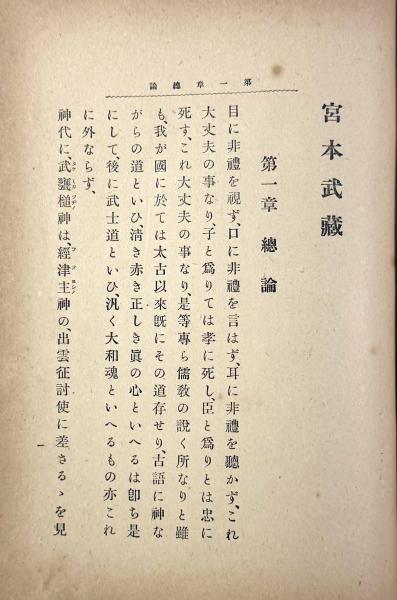 第一章 總論
宮本武藏
第一章 總論
目に非禮を視ず、口に非禮を言はず、耳に非禮を聽かず、これ
大丈夫の事なり、子と爲りては孝に死し、臣と爲りとは忠に
死す、これ大丈夫の事なり、是等專ら儒敎の說く所なりと雖
も、我が國に於ては太古以來旣にその道存せり、古語に神な
がらの道といひ、淸き赤き正しき眞の心といへるは卽ち是
にして、後に武士道といひ、汎く大和魂といへるもの亦これ
に外ならず、
神代に、武甕槌神は、經津主神の、出雲征討使に差さるゝを見
一